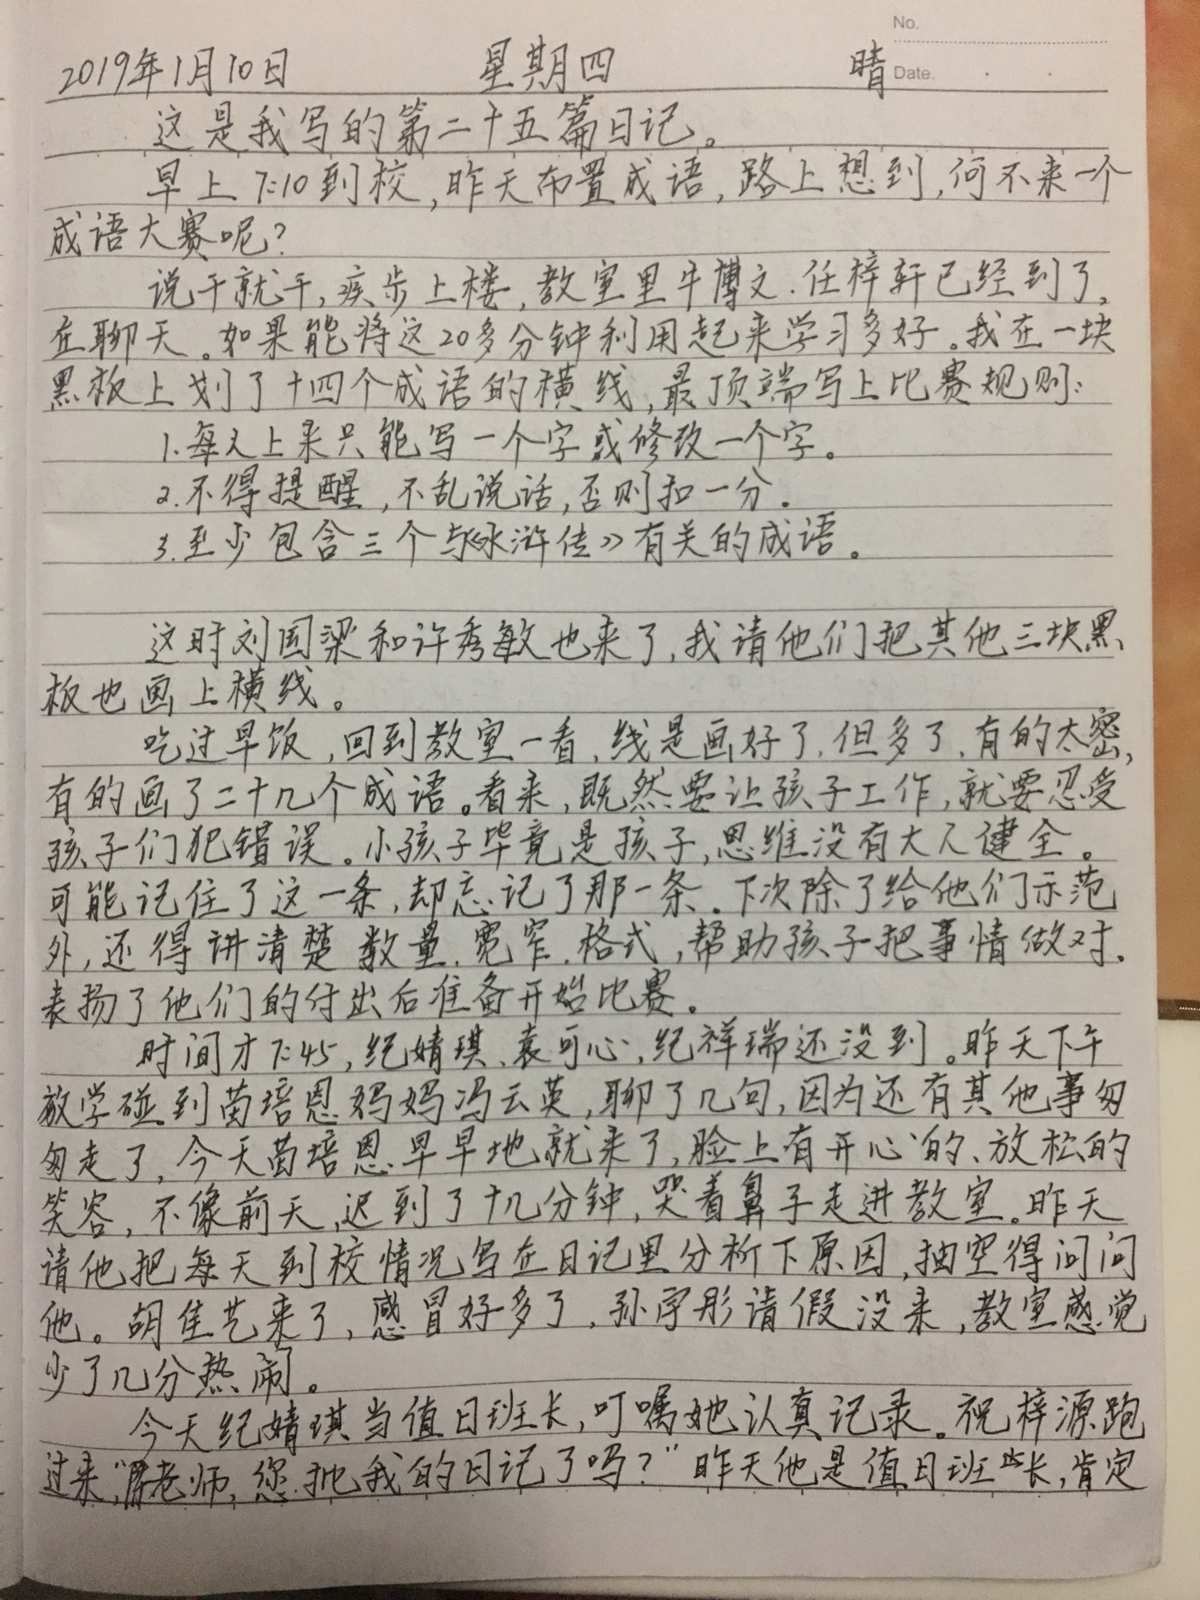 No.
2019年1月10日 星期四 晴 Date.
这是我写的第二十五篇日记。
早上7:10到校,昨天布置成语,路上想到,何不来一个
成语大赛呢?
说干就干,疾步上楼,教室里牛博文.任梓轩已经到了,
在聊天。如果能将这20多分钟利用起来学习多好。我在一块
黑板上划了十四个成语的横线,最顶端写上比赛规则:
1.每人上来只能写一个字或修改一个字。
2.不得提醒,不乱说话,否则扣一分。
3.至少包含三个与《水浒传》有关的成语。
这时刘国梁和许秀敏也来了,我请他们把其他三块黑
板也画上横线。
吃过早饭,回到教室一看,线是画好了,但多了,有的太密,
有的画了二十几个成语。看来,既然要让孩子工作,就要忍受
孩子们犯错误。小孩子毕竟是孩子,思维没有大人健全。
可能记住了这一条,却忘记了那一条。下次除了给他们示范
外,还得讲清楚数量.宽窄.格式,帮助孩子把事情做对.
表扬了他们的付出后准备开始比赛。
时间才7:45,纪婧琪、袁可心,纪祥瑞还没到。昨天下午
放学碰到苗培恩妈妈冯云英,聊了几句,因为还有其他事匆
匆走了,今天苗培恩早早地就来了,脸上有开心的、放松的
笑容,不像前天,迟到了十几分钟,哭着鼻子走进教室。昨天
请他把每天到校情况写在日记里分析下原因,抽空得问问
他。胡佳艺来了,感冒好多了,孙宇彤请假没来,教室感觉
少了几分热闹。
今天纪婧琪当值日班长,叮嘱她认真记录。祝梓源跑
过来,“老师,您批我的日记了吗?”昨天他是值日班长,肯定